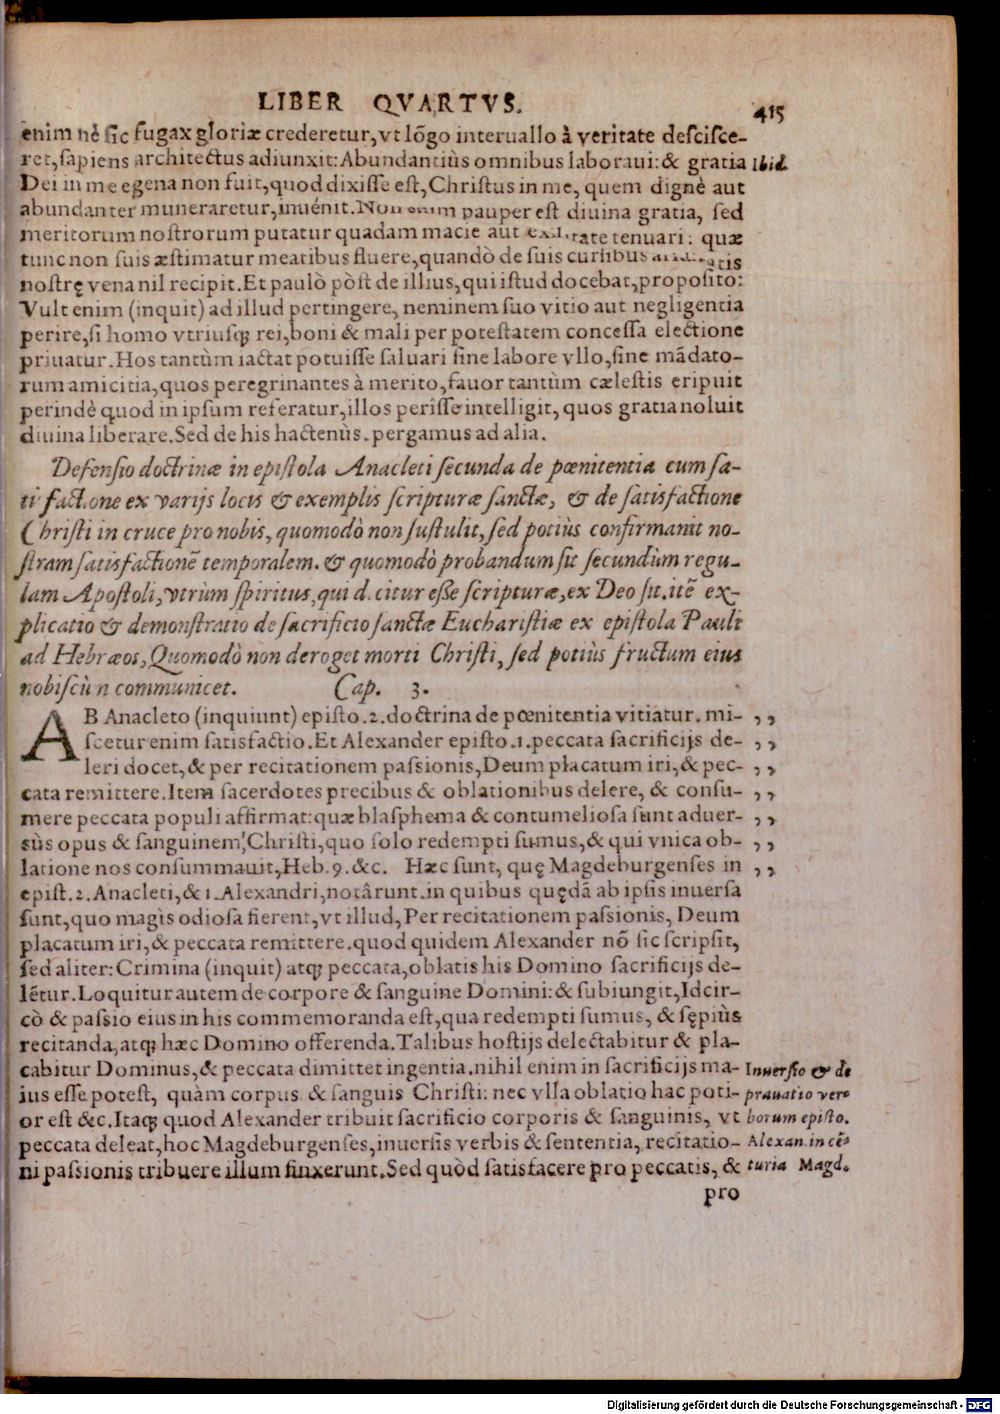 LIBER QVARTVS. 415
enim nè sic fugax gloriæ crederetur, vt lõgo interuallo à veritate descisce-
ret, sapiens architectus adiunxit: Abundantiùs omnibus laboraui: & gratia Ibid.
Dei in me egena non fuit, quod dixisse est, Christus in me, quem dignè aut
abundanter muneraretur, inuénit. Non enim pauper est diuina gratia, sed
meritorum nostrorum putatur quadam macie aut tenuari: quæ
tunc non suis æstimatur meatibus fluere, quandò de suis cursibus
nostrę vena nil recipit. Et paulò pòst de illius, qui istud docebat, proposito:
Vult enim (inquit) ad illud pertingere, neminem suo vitio aut negligentia
perire, si homo vtriusq; rei, boni & mali per potestatem concessa electione
priuatur. Hos tantùm iactat potuisse saluari sine labore vllo, sine mãdato-
rum amicitia, quos peregrinantes à merito, fauor tantùm cælestis eripuit
perindè quod in ipsum referatur, illos perisse intelligit, quos gratia noluit
diuina liberare. Sed de his hactenùs. pergamus ad alia.
Defensio doctrinæ in epistola Anacleti secunda de pœnitentia cum sa-
tisfactione ex varijs locis & exemplis scripturæ sanctæ, & de satisfactione
Christi in cruce pro nobis, quomodò non sustulit, sed potiùs confirmauit no-
stram satisfactionẽ temporalem. & quomodò probandum sit secundùm regu-
lam Apostoli, vtrùm spiritus, qui dicitur esse scripturæ, ex Deo sit. itẽ ex-
plicatio & demonstratio de sacrificio sanctæ Eucharistiæ ex epistola Pauli
ad Hebræos, Quomodò non deroget morti Christi, sed potiùs fructum eius
nobiscùm communicet. Cap. 3.
AB Anacleto (inquiunt) episto. 2. doctrina de pœnitentia vitiatur. mi- ,,
scetur enim satisfactio. Et Alexander episto. 1. peccata sacrificijs de- ,,
leri docet, & per recitationem passionis, Deum placatum iri, & pec- ,,
cata remittere. Item sacerdotes precibus & oblationibus delere, & consu- ,,
mere peccata populi affirmat: quæ blasphema & contumeliosa sunt aduer- ,,
sùs opus & sanguinem, Christi, quo solo redempti sumus, & qui vnica ob- ,,
latione nos consummauit, Heb. 9. &c. Hæc sunt, quę Magdeburgenses in ,,
epist. 2. Anacleti, & 1. Alexandri, notârunt. in quibus quędã ab ipsis inuersa
sunt, quo magìs odiosa fierent, vt illud, Per recitationem passionis, Deum
placatum iri, & peccata remittere. quod quidem Alexander nõ sic scripsit,
sed aliter: Crimina (inquit) atq; peccata, oblatis his Domino sacrificijs de-
lẽtur. Loquitur autem de corpore & sanguine Domini: & subiungit, Idcir-
cò & passio eius in his commemoranda est, qua redempti sumus, & sępiùs
recitanda, atq; hæc Domino offerenda. Talibus hostijs delectabitur & pla-
cabitur Dominus, & peccata dimittet ingentia. nihil enim in sacrificijs ma- Inuersio & de
ius esse potest, quàm corpus & sanguis Christi: nec vlla oblatio hac poti- prauatio ver-
or est &c. Itaq; quod Alexander tribuit sacrificio corporis & sanguinis, vt borum episto.
peccata deleat, hoc Magdeburgenses, inuersis verbis & sententia, recitatio- Alexan. in cẽ-
ni passionis tribuere illum finxerunt. Sed quòd satisfacere pro peccatis, & turia Magd.
pro
Digitalisierung gefördert durch die Deutsche Forschungsgemeinschaft - DFG